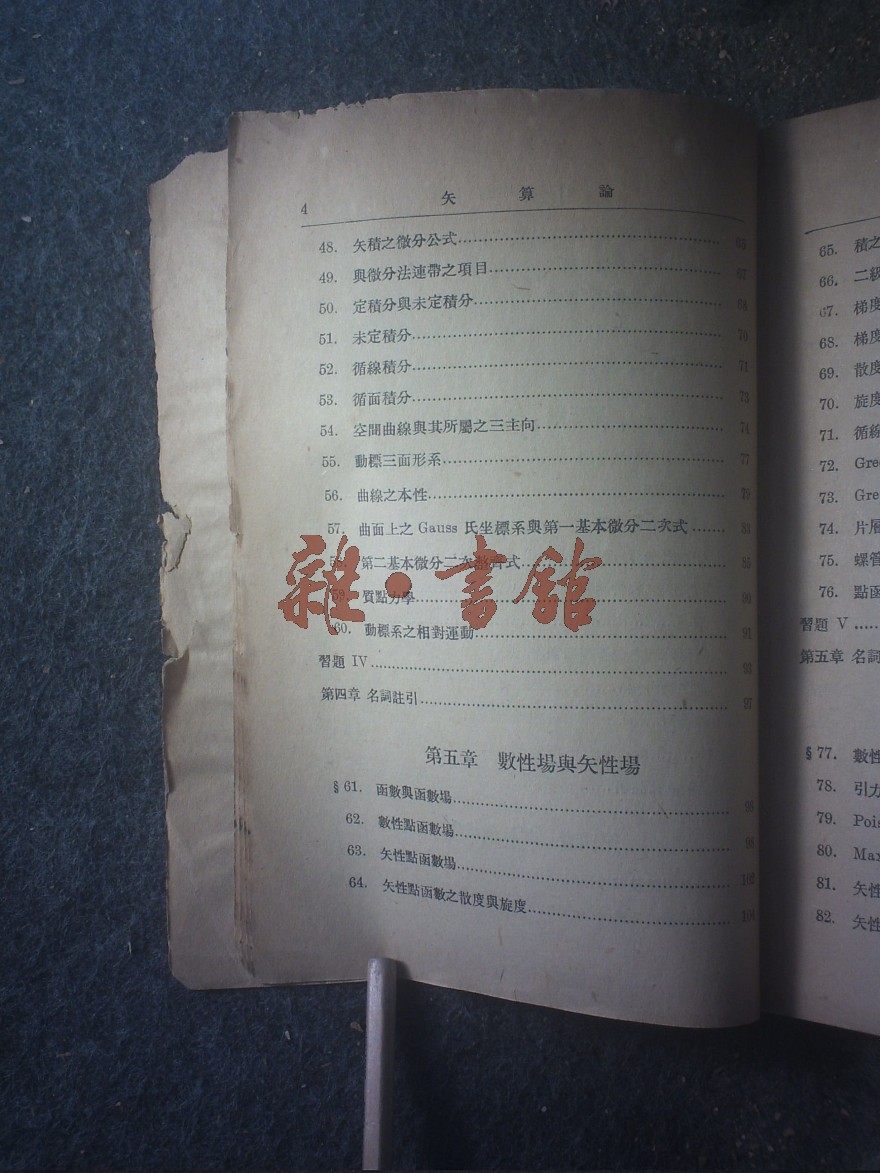 4 矢算論
48. 矢積之微分公式 65
49. 與微分法連帶之項目 67
50. 定積分與未定積分 68
51. 未定積分 70
52. 循線積分 71
53. 循面積分 73
54. 空間曲線與其所屬之三主向 74
55. 動標三面形系 77
56. 曲線之本性 79
57. 曲面上之 Gauss 氏坐標系與第一基本微分二次式
第二基本微分二次 式 85
59. 質點力學 90
60. 動標系之相對運動 91
習題 IV 93
第四章 名詞註引 97
第五章 數性場與矢性場
§61. 函數與函數場
62. 數性點函數場
63. 矢性點函數場 103
64. 矢性點函數之散度與旋度 104
雜·書舘
65. 積之
66. 二級
67. 梯度
68. 梯度
69. 散度
70. 旋度
71. 循線
72. Gre
73. Gre
74. 片層
75. 螺管
76. 點函
習題 V
第五章 名詞
§77. 數性
78. 引力
79. Pois
80. Max
81. 矢性
82. 矢性